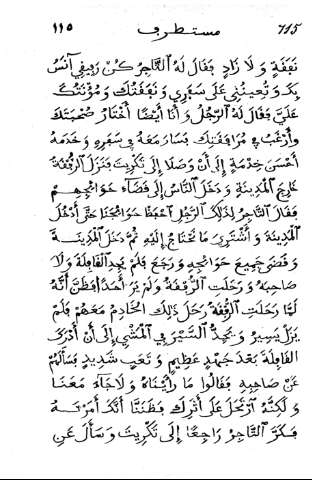 ١١٥ مستطرف 115
نفقة ولا زاد فقال له التاجر كن رفيقي آنس
بك وتعينني على سفري ونفقتك ومؤنتك
علي فقال له الرجل وأنا أيضا أختار صحبتك
وأرغب في مرافقتك بسار معه في سفره وخدمه
أحسن خدمة إلى أن وصلا إلى تكريت فنزل الرفقة
خارج المدينة ودخل الناس إلى قضاء حوائجهم
فقال التاجر لذلك الرجل احفظ حوائجنا حتى أدخل
المدينة وأشتري ما نحتاج إليه ثم دخل المدينة
وقضى جميع حوائجه ورجع فلم يجد القافلة ولا
صاحبه ورحلت الرفقة ولم ير أحدا فظن أنه
لما رحلت الرفقة رحل ذلك الخادم معهم فلم
يزل يسير ويجد السير في المشي إلى أن أدرك
القافلة بعد جهد عظيم وتعب شديد فسألهم
عن صاحبه فقالوا ما رأيناه ولا جاء معنا
ولكنه ارتحل على أثرك فظننا أنك أمرته
فكر التاجر راجعا إلى تكريت وسأل عن